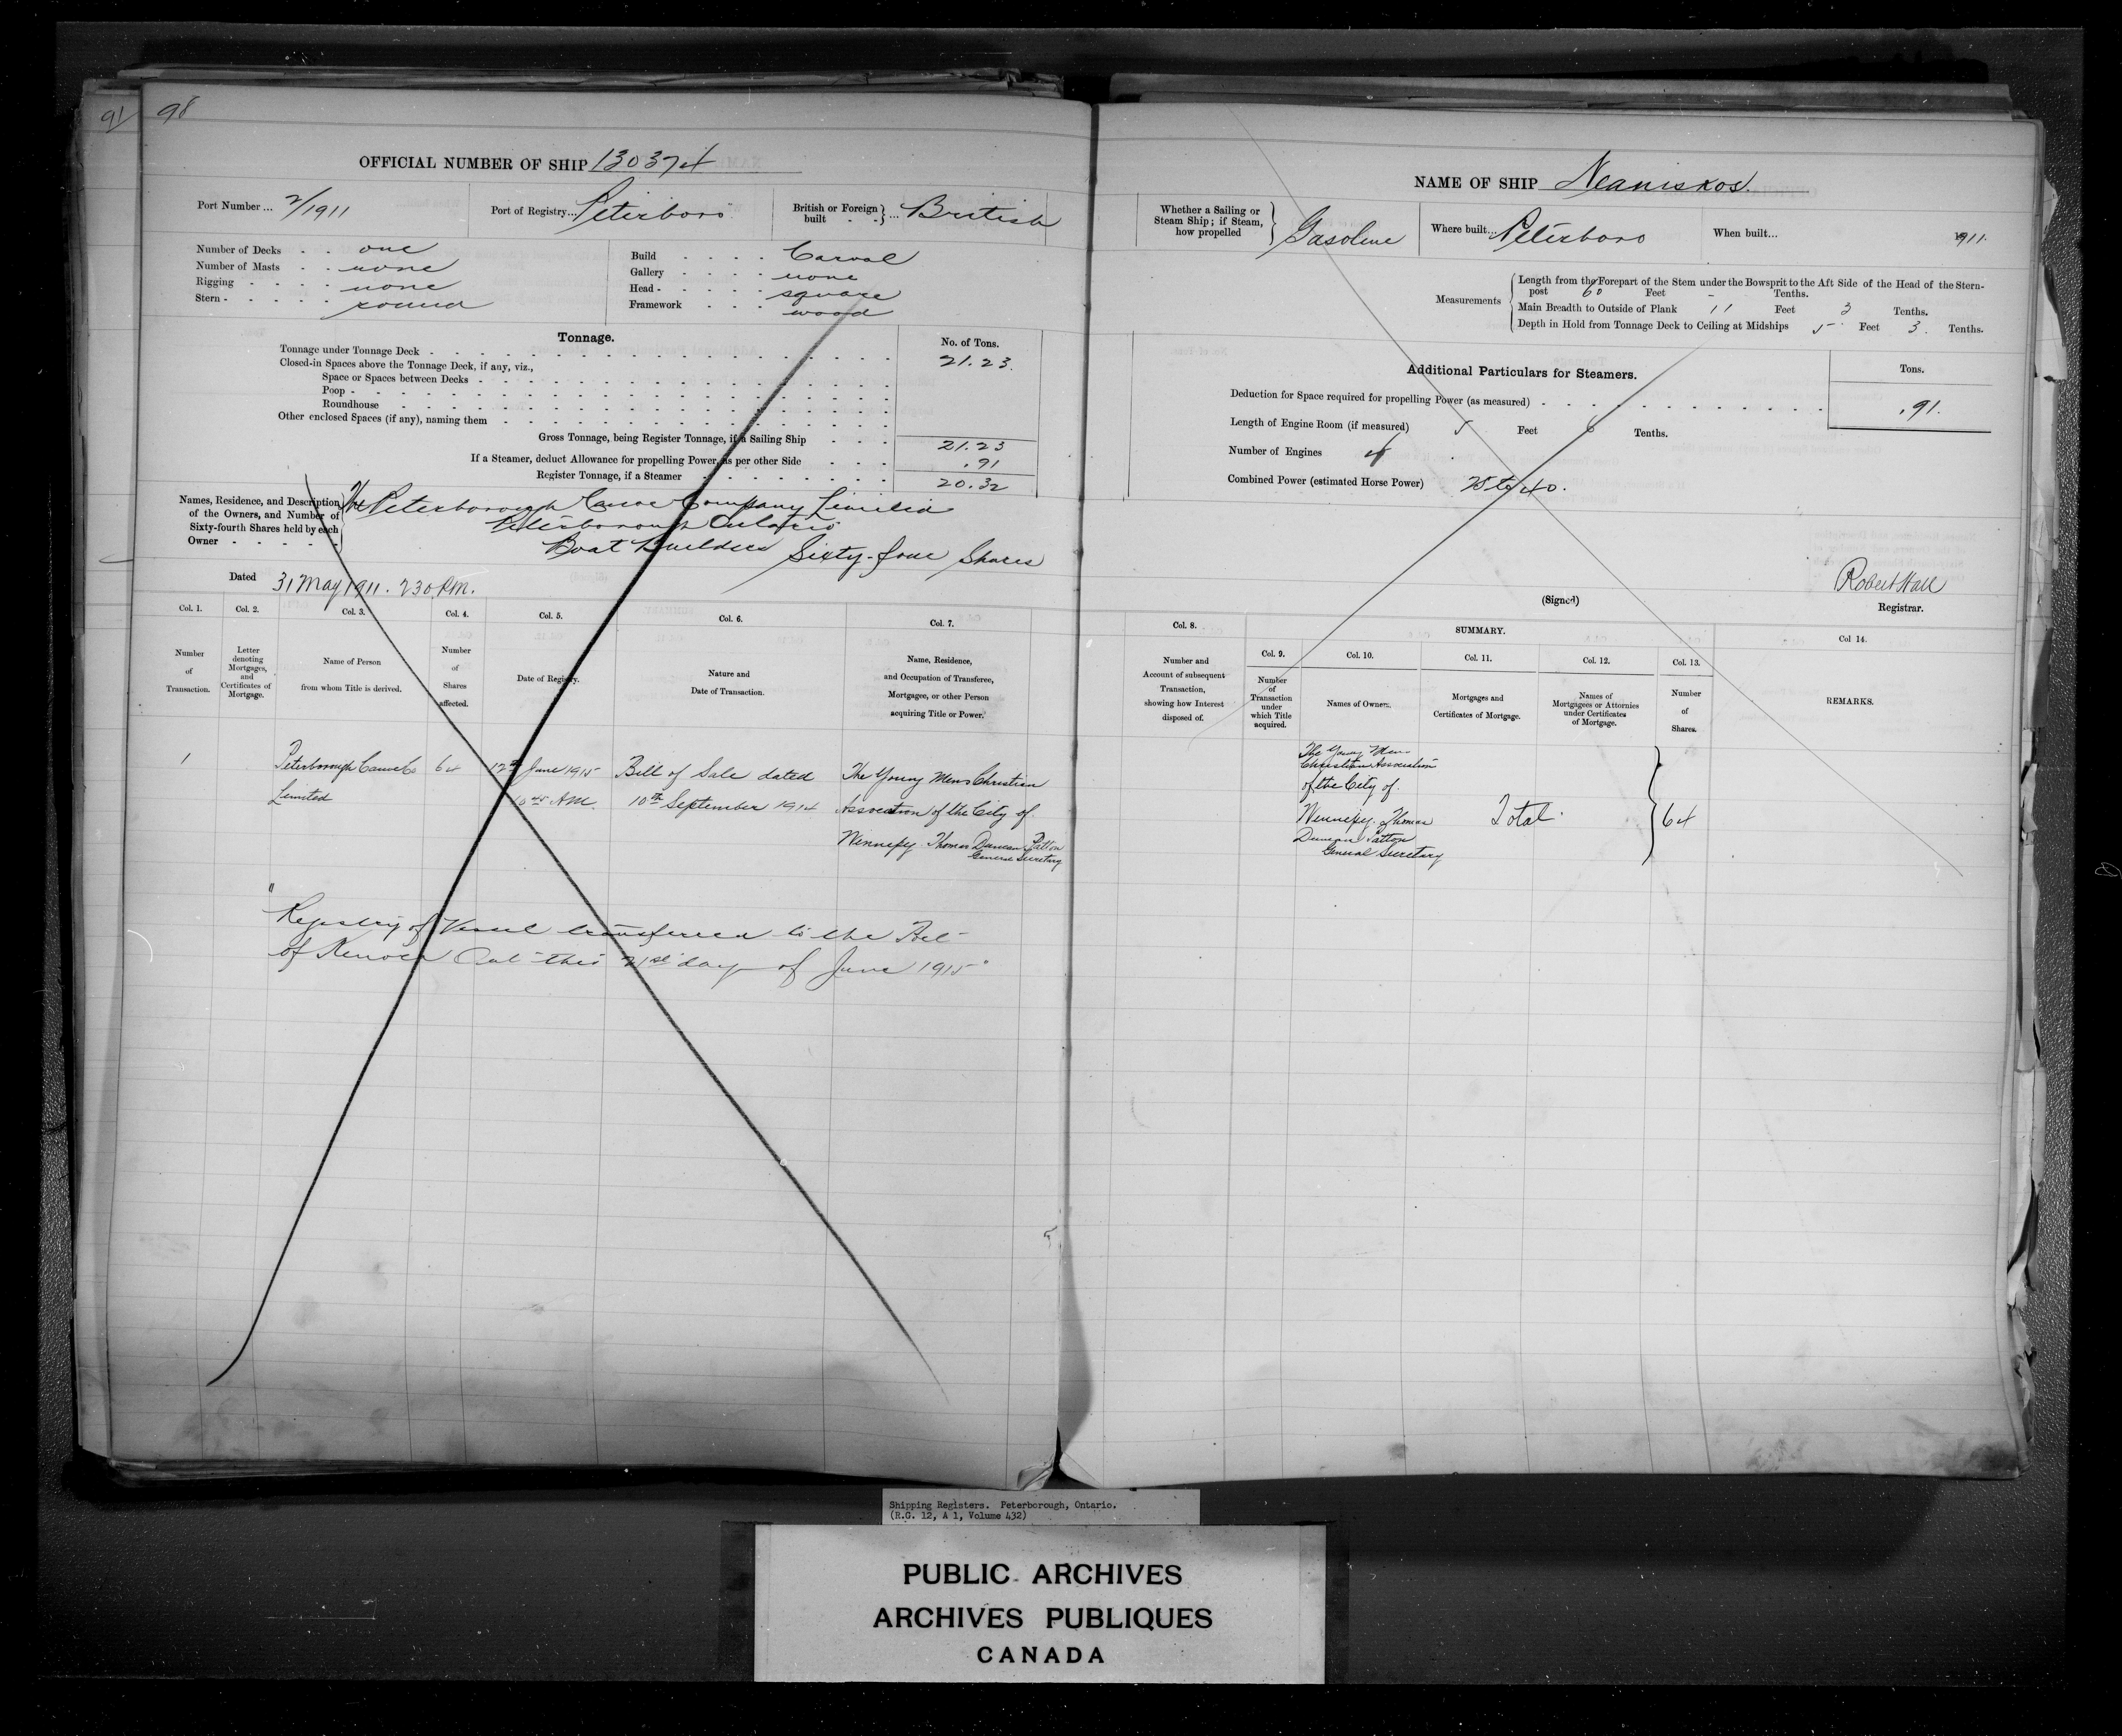 91
98
OFFICIAL NUMBER OF SHIP 130374
Port Number... 2/1911
Port of Registry... Peterboro
British or Foreign built } ... British
Number of Decks . . one
Number of Masts . . none
Rigging . . . . none
Stern - . . . . round
Build . . . . Carvel
Gallery . . . . none
Head - . . . . square
Framework . . . wood
Tonnage.
No. of Tons.
Tonnage under Tonnage Deck 21.23.
Closed-in Spaces above the Tonnage Deck, if any, viz.,
Space or Spaces between Decks
Poop
Roundhouse
Other enclosed Spaces (if any), naming them
Gross Tonnage, being Register Tonnage, if a Sailing Ship 21.23
If a Steamer, deduct Allowance for propelling Power, as per other Side .91
Register Tonnage, if a Steamer 20.32
Names, Residence, and Description of the Owners, and Number of Sixty-fourth Shares held by each Owner
The Peterborough Canoe Company Limited
Peterborough Ontario
Boat Builders Sixty-four Shares
Dated 31 May 1911. 2 30 P.M.
Col. 1.
Col. 2.
Col. 3.
Col. 4.
Col. 5.
Col. 6.
Col. 7.
Number of Transaction.
Letter denoting Mortgages, and Certificates of Mortgage.
Name of Person from whom Title is derived.
Number of Shares affected.
Date of Registry.
Nature and Date of Transaction.
Name, Residence, and Occupation of Transferee, Mortgagee, or other Person acquiring Title or Power.
1 Peterborough Canoe Co 64 12th June 1915 Bill of Sale dated The Young Mens Christian
Limited 10 45 AM. 10th September 1914 Association of the City of
Winnipeg. Thomas Duncan Patton
General Secretary
"Registry of Vessel transferred to the Port
of Kenora Ont this 21st day of June 1915"
NAME OF SHIP Neaniskos.
Whether a Sailing or Steam Ship; if Steam, how propelled } Gasoline
Where built... Peterboro
When built... 1911.
Measurements
Length from the Forepart of the Stem under the Bowsprit to the Aft Side of the Head of the Stern-
post 60 Feet - Tenths.
Main Breadth to Outside of Plank 11 Feet 3 Tenths.
Depth in Hold from Tonnage Deck to Ceiling at Midships 5 Feet 3. Tenths.
Additional Particulars for Steamers.
Tons.
Deduction for Space required for propelling Power (as measured) .91.
Length of Engine Room (if measured) 5 Feet 6 Tenths.
Number of Engines
Combined Power (estimated Horse Power) 25 to 40.
(Signed) Robert Hall
Registrar.
Col. 8.
SUMMARY.
Col. 9.
Col. 10.
Col. 11.
Col. 12.
Col. 13.
Col 14.
Number and Account of subsequent Transaction, showing how Interest disposed of.
Number of Transaction under which Title acquired.
Names of Owners.
Mortgages and Certificates of Mortgage.
Names of Mortgagees or Attornies under Certificates of Mortgage.
Number of Shares.
REMARKS.
The Young Mens
Christian Association
of the City of
Winnipeg. Thomas Total 64
Duncan Patton
General Secretary
Shipping Registers. Peterborough, Ontario.
(R.G. 12, A 1, Volume 432)
PUBLIC ARCHIVES
ARCHIVES PUBLIQUES
CANADA